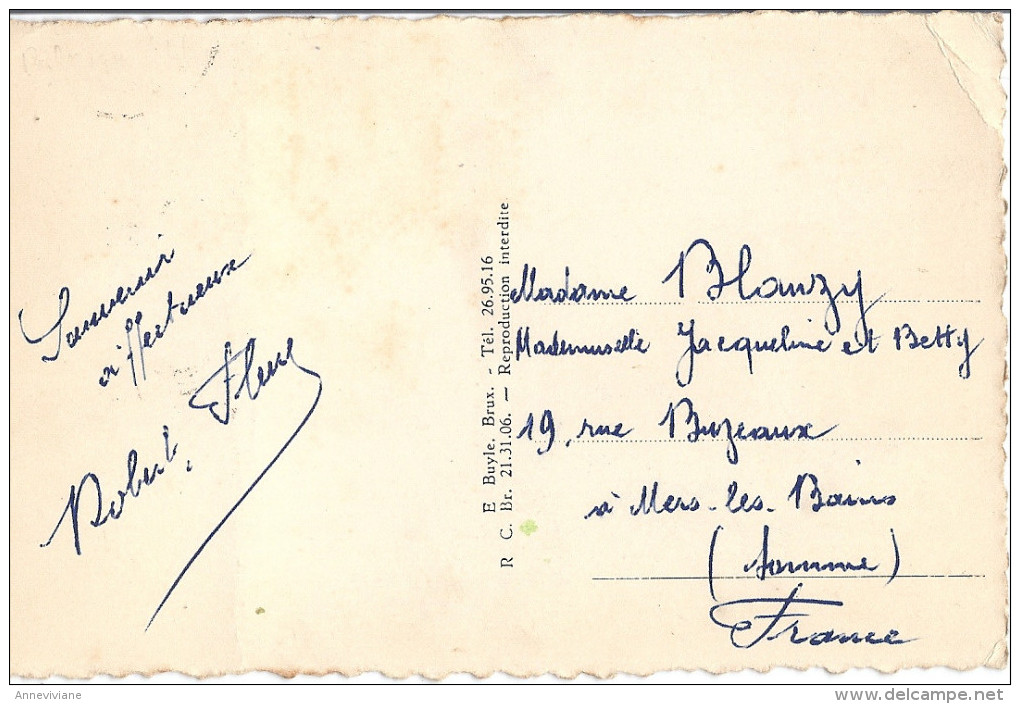 Souvenir
affectueux
Robert, Fleur
E Buyle, Brux. - Tél. 26.95.16
R C. Br. 21.31.06. — Reproduction interdite
Madame Blauzy
Mademuselle Jacqueline et Betty
19, rue Buzeaux
à Mers-les-Bains
(Somme)
France
Anneviviane
delcampe.net